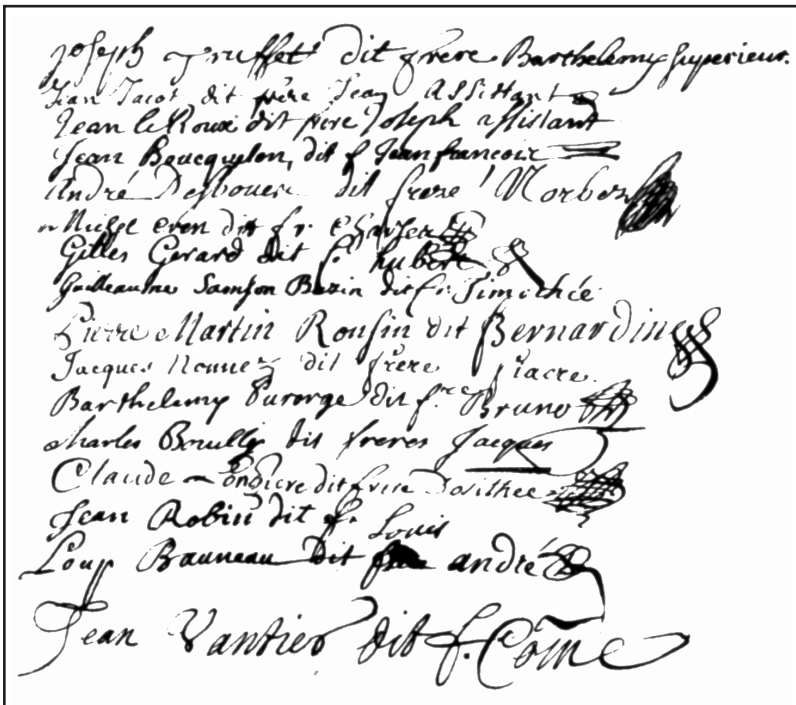 Joseph Truffet dit frere Barthelemy superieur.
Jean Jacot dit frere Jean Assistant
Jean le Roux dit frere Joseph assistant
Jean Boucquelon, dit f. Jean francois
André dit frere Norbert
Michel even dit fr. Charles
Gilles Gerard dit f. hubert
Guilleaume Samson Bazin dit fr. Timothée
Pierre Martin Ronsin dit Bernardin
Jacques Nonnez dit frere fiacre.
Barthelemy Purorge dit f.re Bruno
charles Bouilly dit freres Jacques
Claude dit frere Dosithée
Jean Robin dit f. Louis
Loup Bauneau dit andré
Jean Vantier dit f. Côme